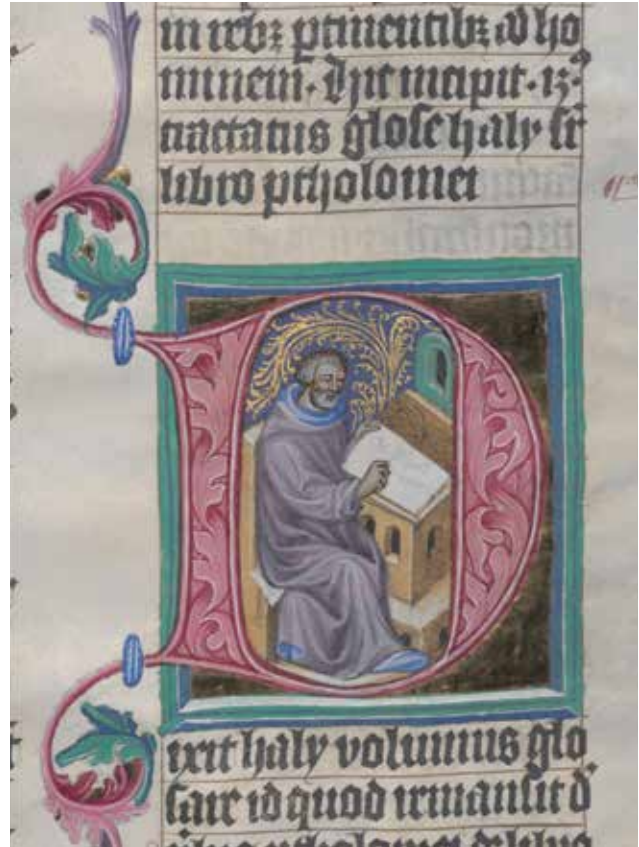 in reb⁊ ptinentib⁊ ad ho
minem. Hic incipit .12.
tractatus glose haly sr̄
libro ptholomei
Dixit haly volumus glo
sare id quod remansit d̓